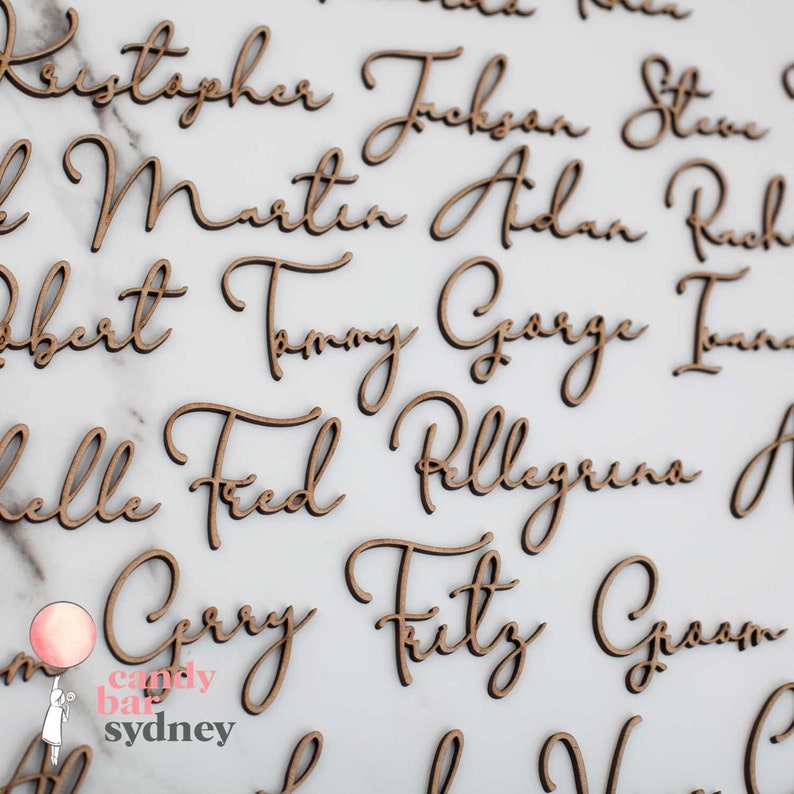 Kristopher Jackson Steve
Martin Aidan
Robert Tommy George Ivana
Fred Pellegrino
Gerry Fritz Groom
candy
bar
sydney